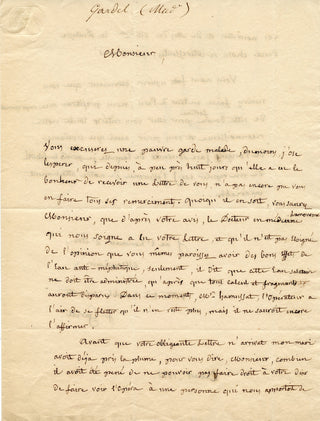 Gardel (Mme)
Monsieur
Vous excuserez une pauvre garde malade, dumoins j'ose
l'esperer, qui depuis à peu près huit jours qu'elle a eu le
bonheur de recevoir une Lettre de vous, n'a pas encore pu vous
en faire tous ses remerciment. Quoiqu'il en soit, vous saurez
Monsieur, que d'après votre avis, le Docteur en medecine
qui nous soigne a lu votre Lettre, et qu'il n'est pas éloigné
de l'opinion que vous même paroissez avoir des bons effets de
l'eau anti-méphitique, seulement, il dit que cette eau
ne doit être administrée qu'après que tout calcul et fragments
auront disparu. Dans ce moment, Mr. l'Operateur a
l'air de se flatter qu'il n'en reste plus, mais il ne sauroit encore
l'affirmer.
Avant que votre obligeante Lettre n'arrivat mon mari
avoit déja pris la plume, pour vous dire, Monsieur, combien
il avoit été peiné de ne pouvoir pas faire droit à votre
de faire voir l'Opera à une personne qui nous apportoit de